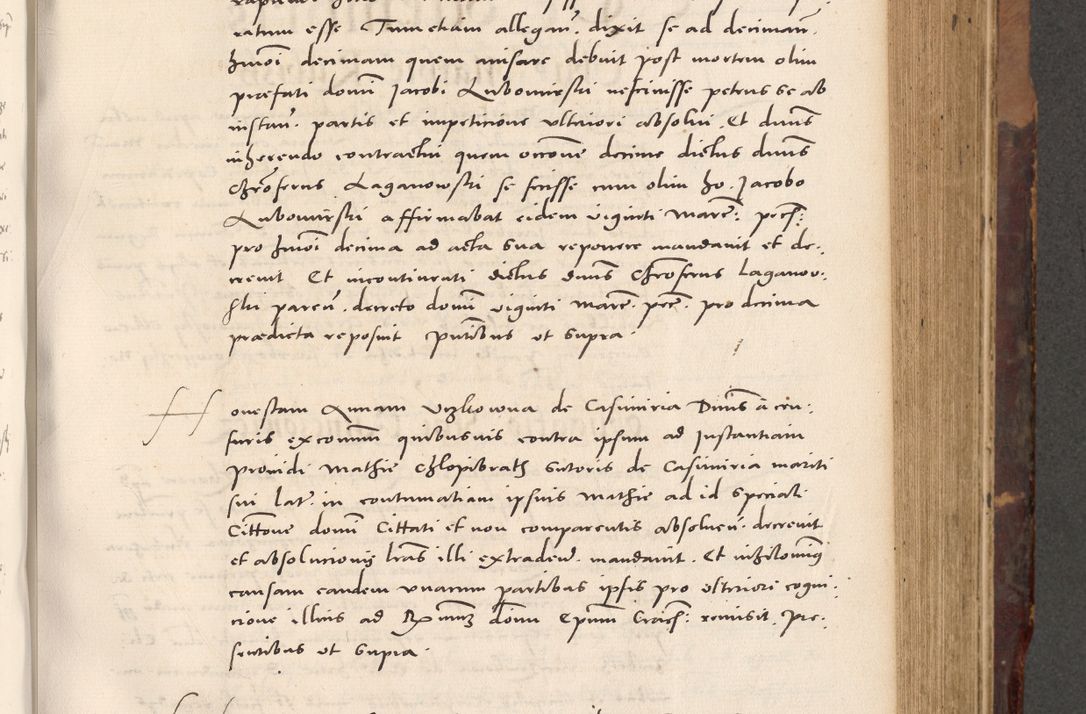 ratum esse Tum etiam allegan. dixit se ad decimam
hmoi decimam quem avisare debuit post mortem olim
præfati domi Jacobi Lubomirski nescivisse petens se ab
instan. partis et impeticione ulteriori absolvi. Et dnus
inherendo contractui quem occone decime dictus dnus
Chrofervs Laganowski se fecisse cum olim ho. Jacobo
Lubomirski affirmabat eidem viginti marc: pec:
pro hmoi decima ad acta sua reponere mandavit et de-
crevit Et incontinenti dictus dnus Chrofervs Laganov-
ski paren. decreto domi viginti marc. pec. pro decima
prædicta reposuit pntibus ut supra.
Honestam Annam Uzkowna de Casimiria Dnus a cen-
suris excomm quibusvis contra ipsum ad Instantiam
providi Mathie Chlopibrath sutoris de Casimiria mariti
sui lat. in contumatiam ipsius Mathie ad id special.
Cittone domi Cittati et non comparentis absolven. decrevit
et absolucionis lras illi extraden. mandavit. Et nihilomi9
causam eandem unacum partibus ipsis pro ulteriore cogni-
cione illius ad Rmum domi Epum Crac: remisit. Pre-
sentibus ut supra.